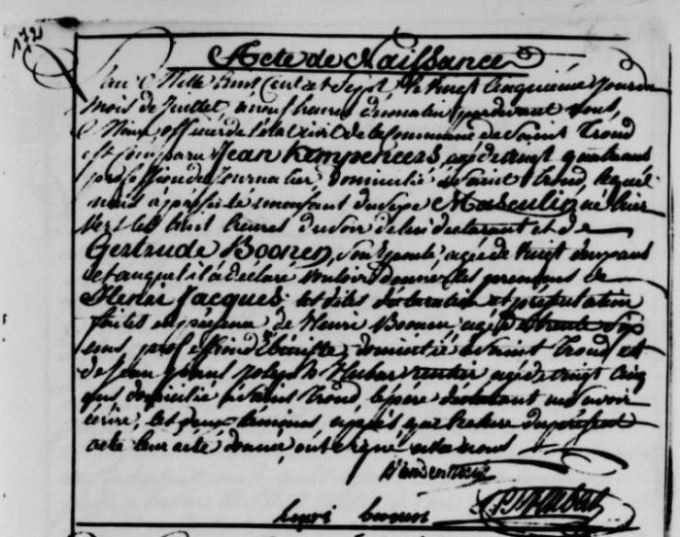 172
Acte de Naissance
L'an Mille huit Cent et Sept, le vingt cinquieme jour du
mois de Juillet, a neuf heures du matin, pardevant nous,
Maire officier de l'état civil de la Commune de Saint Trond
est comparu Jean Kempeneers, agé de vingt quatre ans
profession de Journalier domicilié a Saint Trond, lequel
nous a presenté un enfant du sexe Masculin, né hier
vers les huit heures du soir de lui declarant et de
Gertrude Boonen, son epouse, agée de vingt ans
et auquel il a declaré vouloir donner les prenoms de
Henri Jacques les dites declaration et présentation
faites en présence de Henri Boonen, agé de trente six
ans, profession d'Ebéniste, domicilié a Saint Trond et
de Jean Joseph Hubar rentier agé de vingt cinq
ans domicilié a Saint Trond le père declarant ne savoir
écrire, les deux témoins, après que lecture du présent
acte leur a été donnée, ont signé avec nous
henri boonen